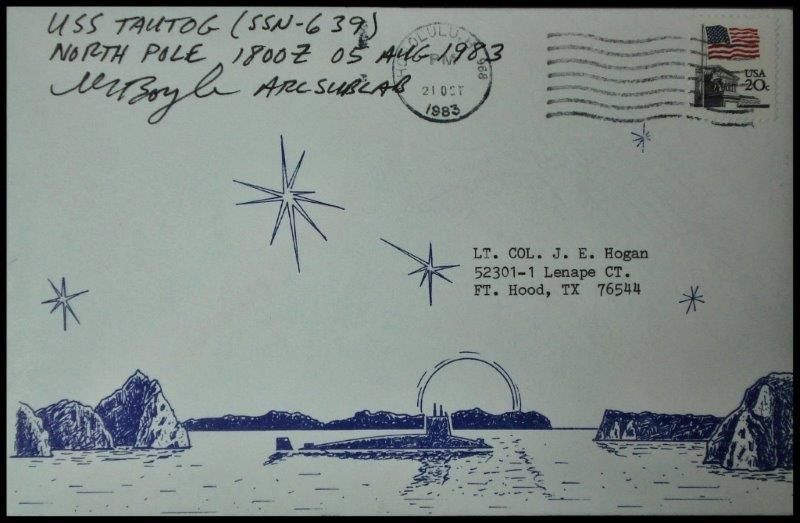 USS TAUTOG (SSN-639)
NORTH POLE 1800Z 05 AUG 1983
Boyle ARCSUBLAB
HONOLULU, HI 968
PM
21 OCT
1983
USA
20c
LT. COL. J. E. Hogan
52301-1 Lenape CT.
FT. Hood, TX 76544